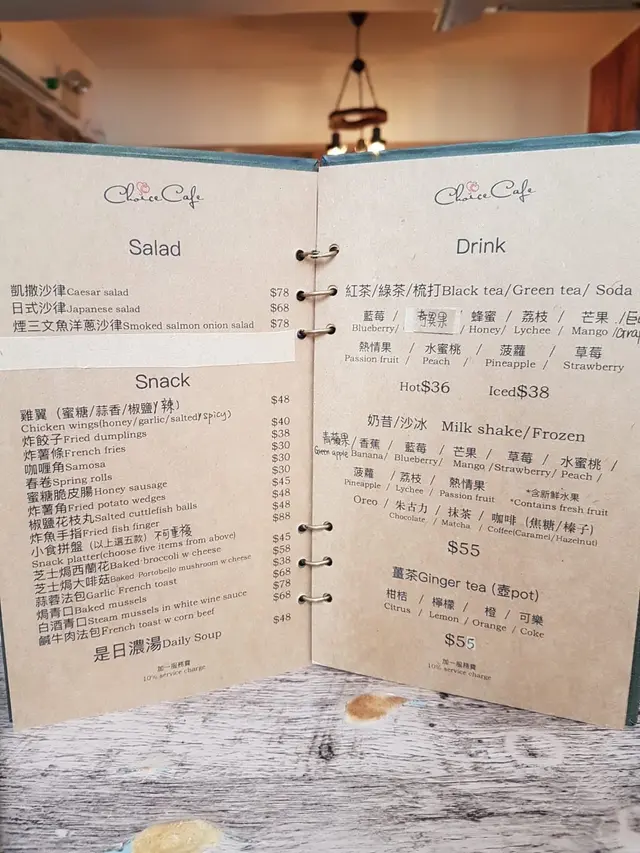 Choice Cafe
Salad
凱撒沙律Caesar salad $78
日式沙律Japanese salad $68
煙三文魚洋蔥沙律Smoked salmon onion salad $78
Snack
雞翼（蜜糖/蒜香/椒鹽/辣） $48
Chicken wings(honey/garlic/salted/spicy)
炸餃子Fried dumplings $40
炸薯條French fries $38
咖喱角Samosa $30
春卷Spring rolls $30
蜜糖脆皮腸Honey sausage $30
炸薯角Fried potato wedges $45
椒鹽花枝丸Salted cuttlefish balls $48
炸魚手指Fried fish finger $48
小食拼盤（以上選五款）不可重複 $88
Snack platter(choose five items from above)
芝士焗西蘭花Baked broccoli w cheese $45
芝士焗大啡菇Baked Portobello mushroom w cheese $58
蒜蓉法包Garlic French toast $38
焗青口Baked mussels $68
白酒青口Steam mussels in white wine sauce $78
鹹牛肉法包French toast w corn beef $68
是日濃湯Daily Soup $48
加一服務費
10% service charge
Choice Cafe
Drink
紅茶/綠茶/梳打Black tea/Green tea/ Soda
藍莓 / 青蘋果 蜂蜜 / 荔枝 / 芒果 /
Blueberry/ / Honey/ Lychee / Mango /
熱情果 / 水蜜桃 / 菠蘿 / 草莓
Passion fruit / Peach / Pineapple / Strawberry
Hot$36 Iced$38
奶昔/沙冰 Milk shake/Frozen
青蘋果/香蕉 / 藍莓 / 芒果 / 草莓 / 水蜜桃 /
Green apple Banana/ Blueberry/ Mango /Strawberry/ Peach /
菠蘿 / 荔枝 / 熱情果 *含新鮮水果
Pineapple / Lychee / Passion fruit *Contains fresh fruit
Oreo / 朱古力 / 抹茶 / 咖啡 (焦糖/榛子)
Chocolate / Matcha / Coffee(Caramel/Hazelnut)
$55
薑茶Ginger tea (壺pot)
柑桔 / 檸檬 / 橙 / 可樂
Citrus / Lemon / Orange / Coke
$55
加一服務費
10% service charge